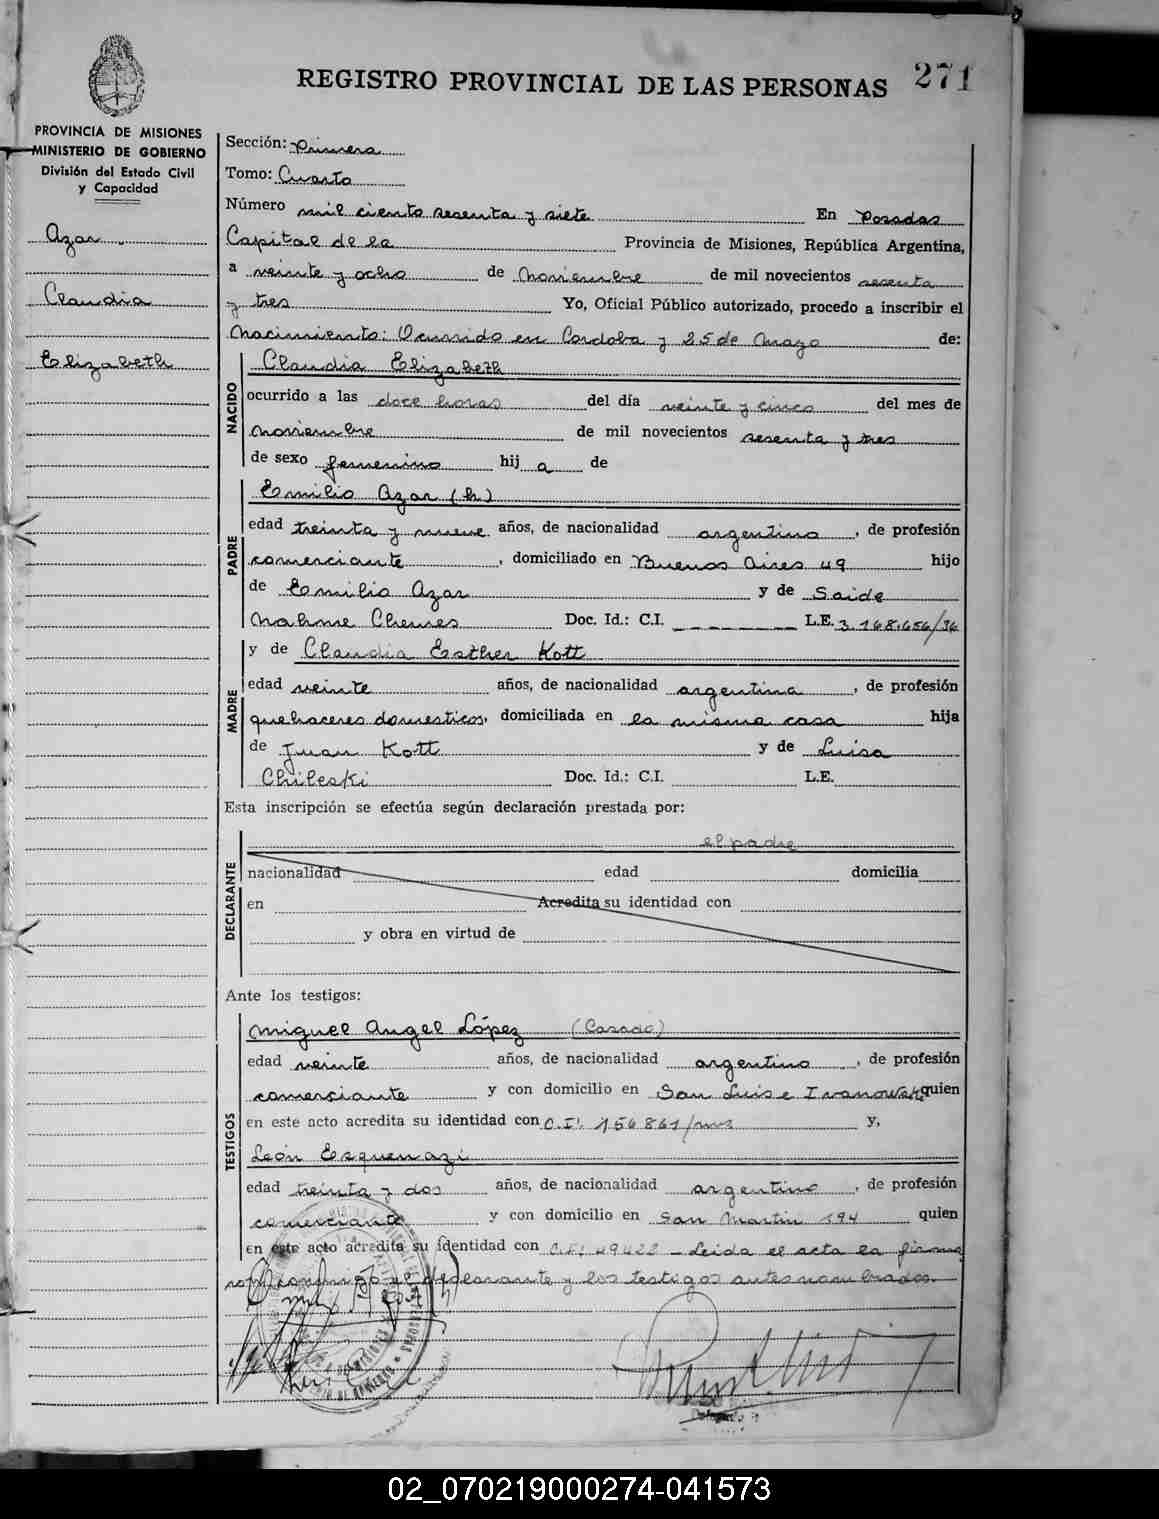 REGISTRO PROVINCIAL DE LAS PERSONAS 271
PROVINCIA DE MISIONES
MINISTERIO DE GOBIERNO
División del Estado Civil
y Capacidad
Azar
Claudia
Elizabeth
Sección: Primera
Tomo: Cuarto
Número mil ciento sesenta y siete En Posadas
Capital de la Provincia de Misiones, República Argentina,
a veinte y ocho de noviembre de mil novecientos sesenta
y tres Yo, Oficial Público autorizado, procedo a inscribir el
Nacimiento: Ocurrido en Cordoba y 25 de Mayo de:
NACIDO
Claudia Elizabeth
ocurrido a las doce horas del día veinte y cinco del mes de
noviembre de mil novecientos sesenta y tres
de sexo femenino hij a de
PADRE
Emilio Azar (h)
edad treinta y nueve años, de nacionalidad argentino, de profesión
comerciante, domiciliado en Buenos Aires 49 hijo
de Emilio Azar y de Saide
Nahme Chemes Doc. Id.: C.I. _ _ _ _ _ _ L.E. 3.168.656/36
y de Claudia Esther Kott
MADRE
edad veinte años, de nacionalidad argentina, de profesión
quehaceres domesticos, domiciliada en la misma casa hija
de Juan Kott y de Luisa
Chileski Doc. Id.: C.I. L.E.
Esta inscripción se efectúa según declaración prestada por:
DECLARANTE
el padre
nacionalidad edad domicilia
en Acredita su identidad con
y obra en virtud de
Ante los testigos:
TESTIGOS
Miguel Angel López (Casado)
edad veinte años, de nacionalidad argentino, de profesión
comerciante y con domicilio en San Luis e quien
en este acto acredita su identidad con C.I. 156861/mns y,
León Esquenazi
edad treinta y dos años, de nacionalidad argentino, de profesión
comerciante y con domicilio en San Martin 194 quien
en este acto acredita su identidad con C.I. 49422 - Leida el acta la firma
el declarante y los testigos antes nombrados.
02_070219000274-041573